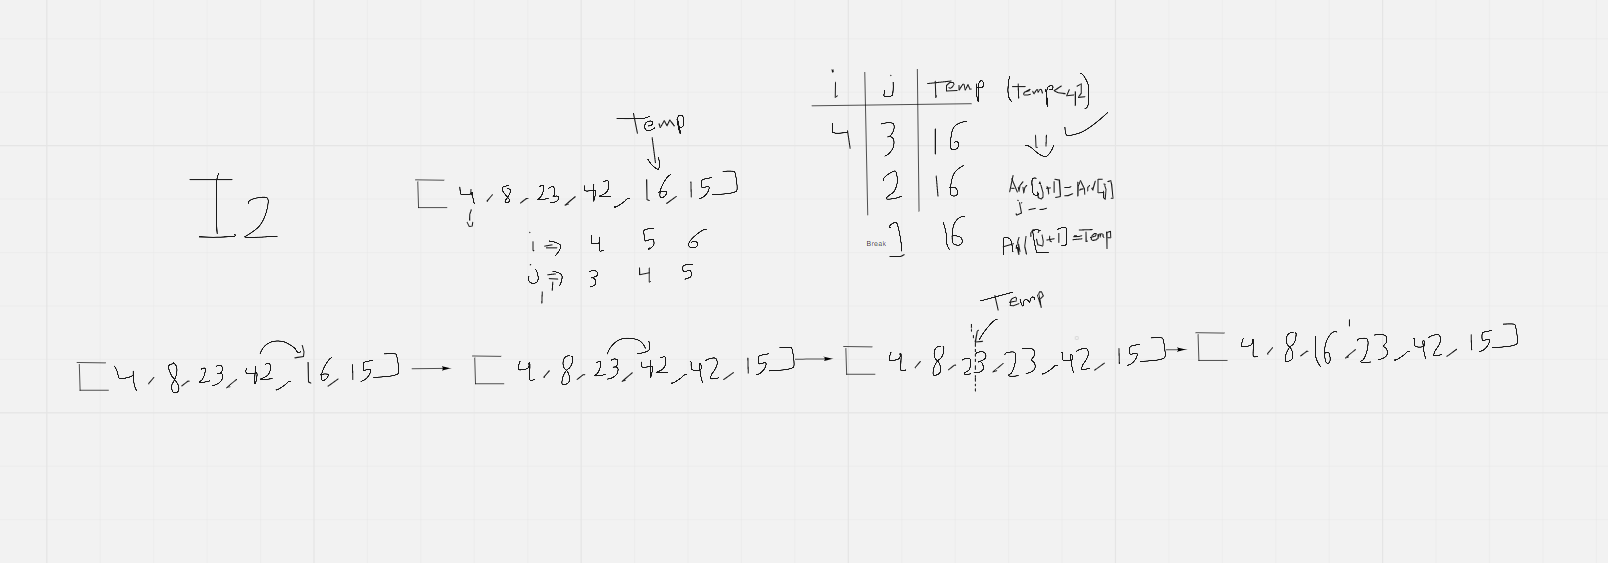 I2
Temp
[4, 8, 23, 42, 16, 15]
i ⇒ 4 5 6
j ⇒ 3 4 5
i j Temp (Temp<42)
4 3 16
2 16 Arr[j+1]=Arr[j]
j--
Break 1 16 Arr[j+1]=Temp
Temp
[4, 8, 23, 42, 16, 15] → [4, 8, 23, 42, 42, 15] → [4, 8, 23, 23, 42, 15] → [4, 8, 16, 23, 42, 15]